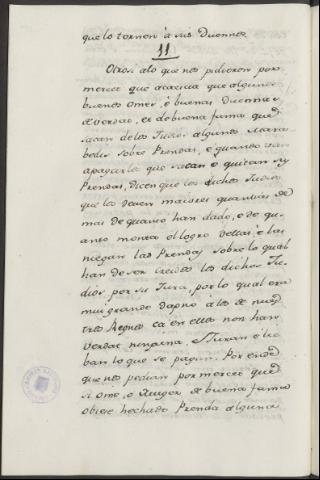 que lo tornen à sus Duennos
11
Otrosi alo que nos pidieron por
merced que acaescia que algunos
buenos omes, è buenas Duennas
de verdat, et de buena fama que
sacan delos Judios algunos Mara
bedis sobre Prendas, e quando
apagarla que sacan e quitan sus
Prendas, dicen que los dichos Judios
que les deven maiores quantias de
mas de quanto han dado, e de qu
anto monta el logro dellas e las
niegan las Prendas sobre lo qual
han de ser creidos los dichos Ju
dios por su Jura, por lo qual era
mui grande dapno a los de nues
tros Regnos ca en ellos non han
verdat ninguna, e Juran è lie
ban lo que se pagan. Por ende
que nos pedian por merced que
si ome, o Muger de buena fama
obiese hechado Prenda alguna